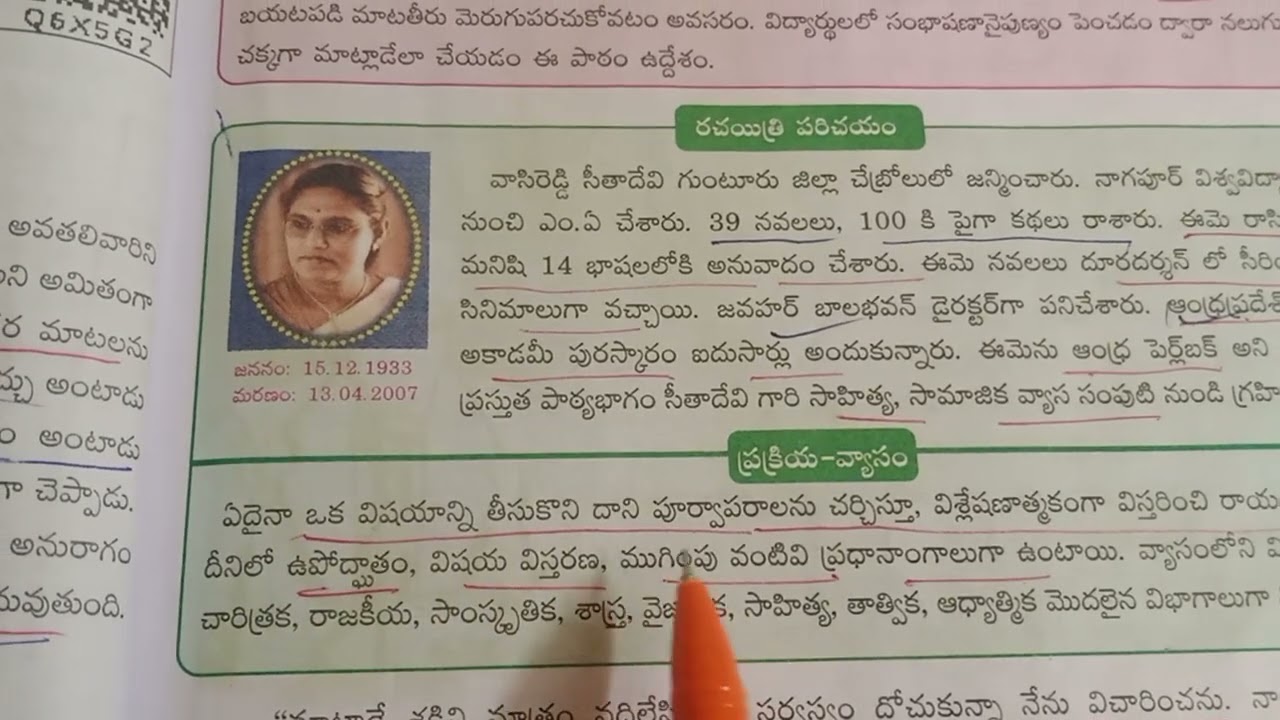 Q6X5G2
బయటపడి మాటతీరు మెరుగుపరచుకోవటం అవసరం. విద్యార్థులలో సంభాషణానైపుణ్యం పెంచడం ద్వారా నలుగు
చక్కగా మాట్లాడేలా చేయడం ఈ పాఠం ఉద్దేశం.
అవతలివారిని
అమితంగా
మాటలను
అంటాడు
అంటాడు
చెప్పాడు.
అనురాగం
రచయిత్రి పరిచయం
వాసిరెడ్డి సీతాదేవి గుంటూరు జిల్లా చేబ్రోలులో జన్మించారు. నాగపూర్ విశ్వవిద్యా
నుంచి ఎం.ఏ చేశారు. 39 నవలలు, 100 కి పైగా కథలు రాశారు. ఈమె రాసి
మనిషి 14 భాషలలోకి అనువాదం చేశారు. ఈమె నవలలు దూరదర్శన్ లో సీరి
సినిమాలుగా వచ్చాయి. జవహర్ బాలభవన్ డైరక్టర్‌గా పనిచేశారు. ఆంధ్రప్రదేశ్
అకాడమీ పురస్కారం ఐదుసార్లు అందుకున్నారు. ఈమెను ఆంధ్ర పెర్ల్‌బక్ అని
ప్రస్తుత పాఠ్యభాగం సీతాదేవి గారి సాహిత్య, సామాజిక వ్యాస సంపుటి నుండి గ్రహి
జననం: 15.12.1933
మరణం: 13.04.2007
ప్రక్రియ-వ్యాసం
ఏదైనా ఒక విషయాన్ని తీసుకొని దాని పూర్వాపరాలను చర్చిస్తూ, విశ్లేషణాత్మకంగా విస్తరించి రాయ
దీనిలో ఉపోద్ఘాతం, విషయ విస్తరణ, ముగింపు వంటివి ప్రధానాంగాలుగా ఉంటాయి. వ్యాసంలోని
చారిత్రక, రాజకీయ, సాంస్కృతిక, శాస్త్ర, సాహిత్య, తాత్విక, ఆధ్యాత్మిక మొదలైన విభాగాలుగా
దోచుకున్నా నేను విచారించను. నా